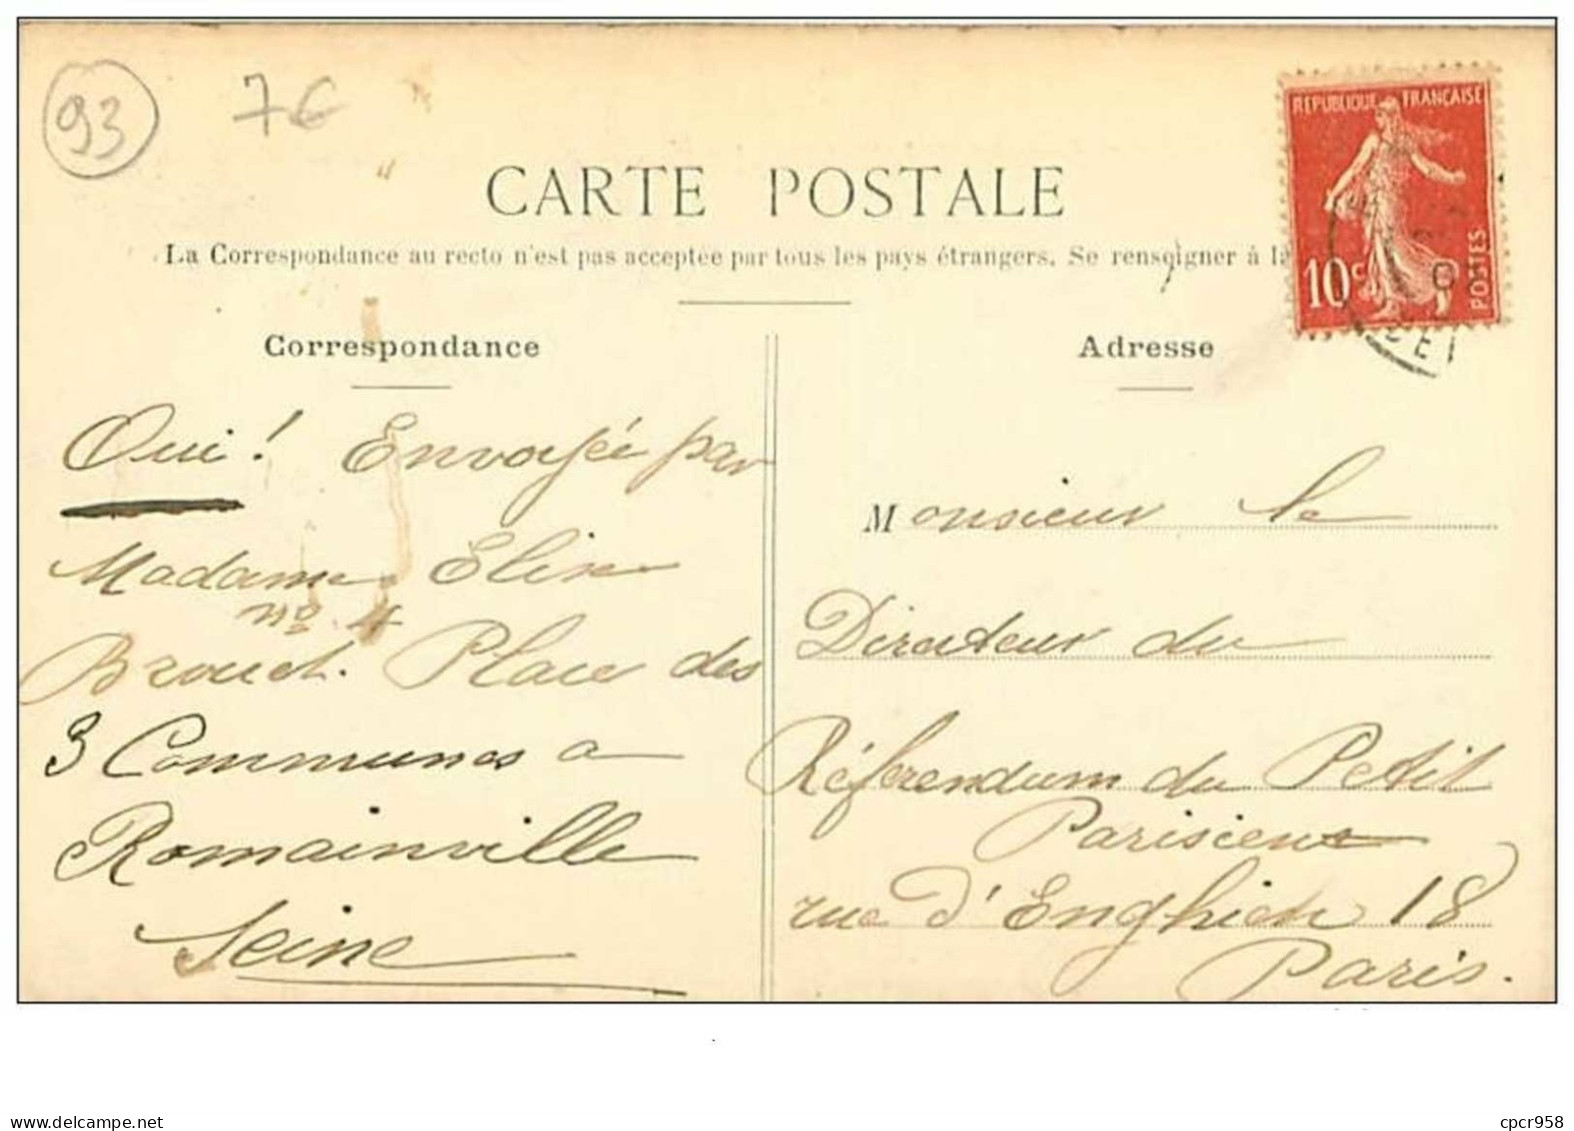 93
7€
CARTE POSTALE
La Correspondance au recto n'est pas acceptée par tous les pays étrangers. Se renseigner à la
REPUBLIQUE FRANÇAISE
10c
POSTES
Correspondance
Oui! Envoyée par
Madame Elise
no 4
Brouet. Place des
3 Communes a
Romainville
Seine
Adresse
Monsieur le
Directeur du
Référendum du Petit
Parisien
rue d'Enghien 18
Paris.
www.delcampe.net
cpcr958